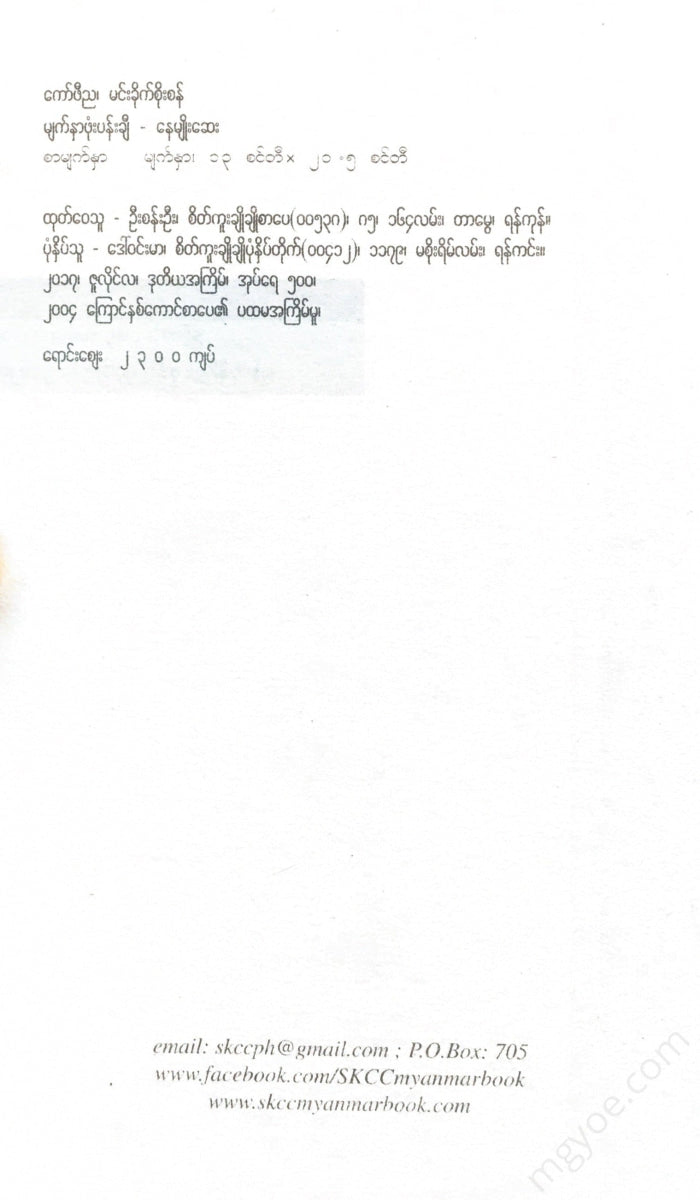 ကော်ဖီည၊ မင်းခိုက်စိုးစန်
မျက်နှာဖုံးပန်းချီ - နေမျိုးဆေး
စာမျက်နှာ မျက်နှာ၊ ၁၃ စင်တီ× ၂၁.၅ စင်တီ
ထုတ်ဝေသူ - ဦးစန်းဦး၊ စိတ်ကူးချိုချိုစာပေ(၀၀၅၃၈)၊ ဂ၅၊ ၁၆၄လမ်း၊ တာမွေ၊ ရန်ကုန်။
ပုံနှိပ်သူ - ဒေါ်ဝင်းမာ၊ စိတ်ကူးချိုချိုပုံနှိပ်တိုက်(၀၀၄၁၂)၊ ၁၁၇၉၊ မစိုးရိမ်လမ်း၊ ရန်ကင်း။
၂၀၁၇၊ ဇူလိုင်လ၊ ဒုတိယအကြိမ်၊ အုပ်ရေ ၅၀၀၊
၂၀၀၄ ကြောင်နှစ်ကောင်စာပေ၏ ပထမအကြိမ်မူ၊
ရောင်းဈေး ၂ ၃ ၀ ၀ ကျပ်
email: skccph@gmail.com ; P.O.Box: 705
www.facebook.com/SKCCmyanmarbook
www.skccmyanmarbook.com
mgyoe.com